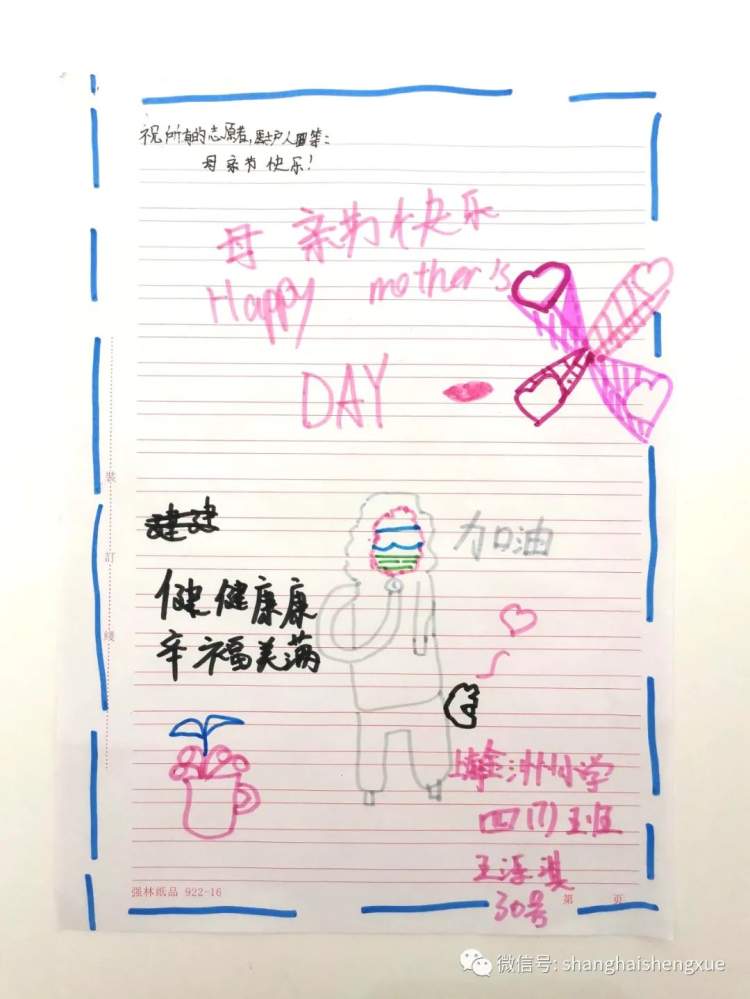 祝所有的志愿者,
母亲节快乐!
母亲节快乐
Happy mother's
DAY
加油
健健康康
幸福美满
装
订
线
小学
四(7)班
30号
强林纸品 922-16
第 页
微信号: shanghaishengxue